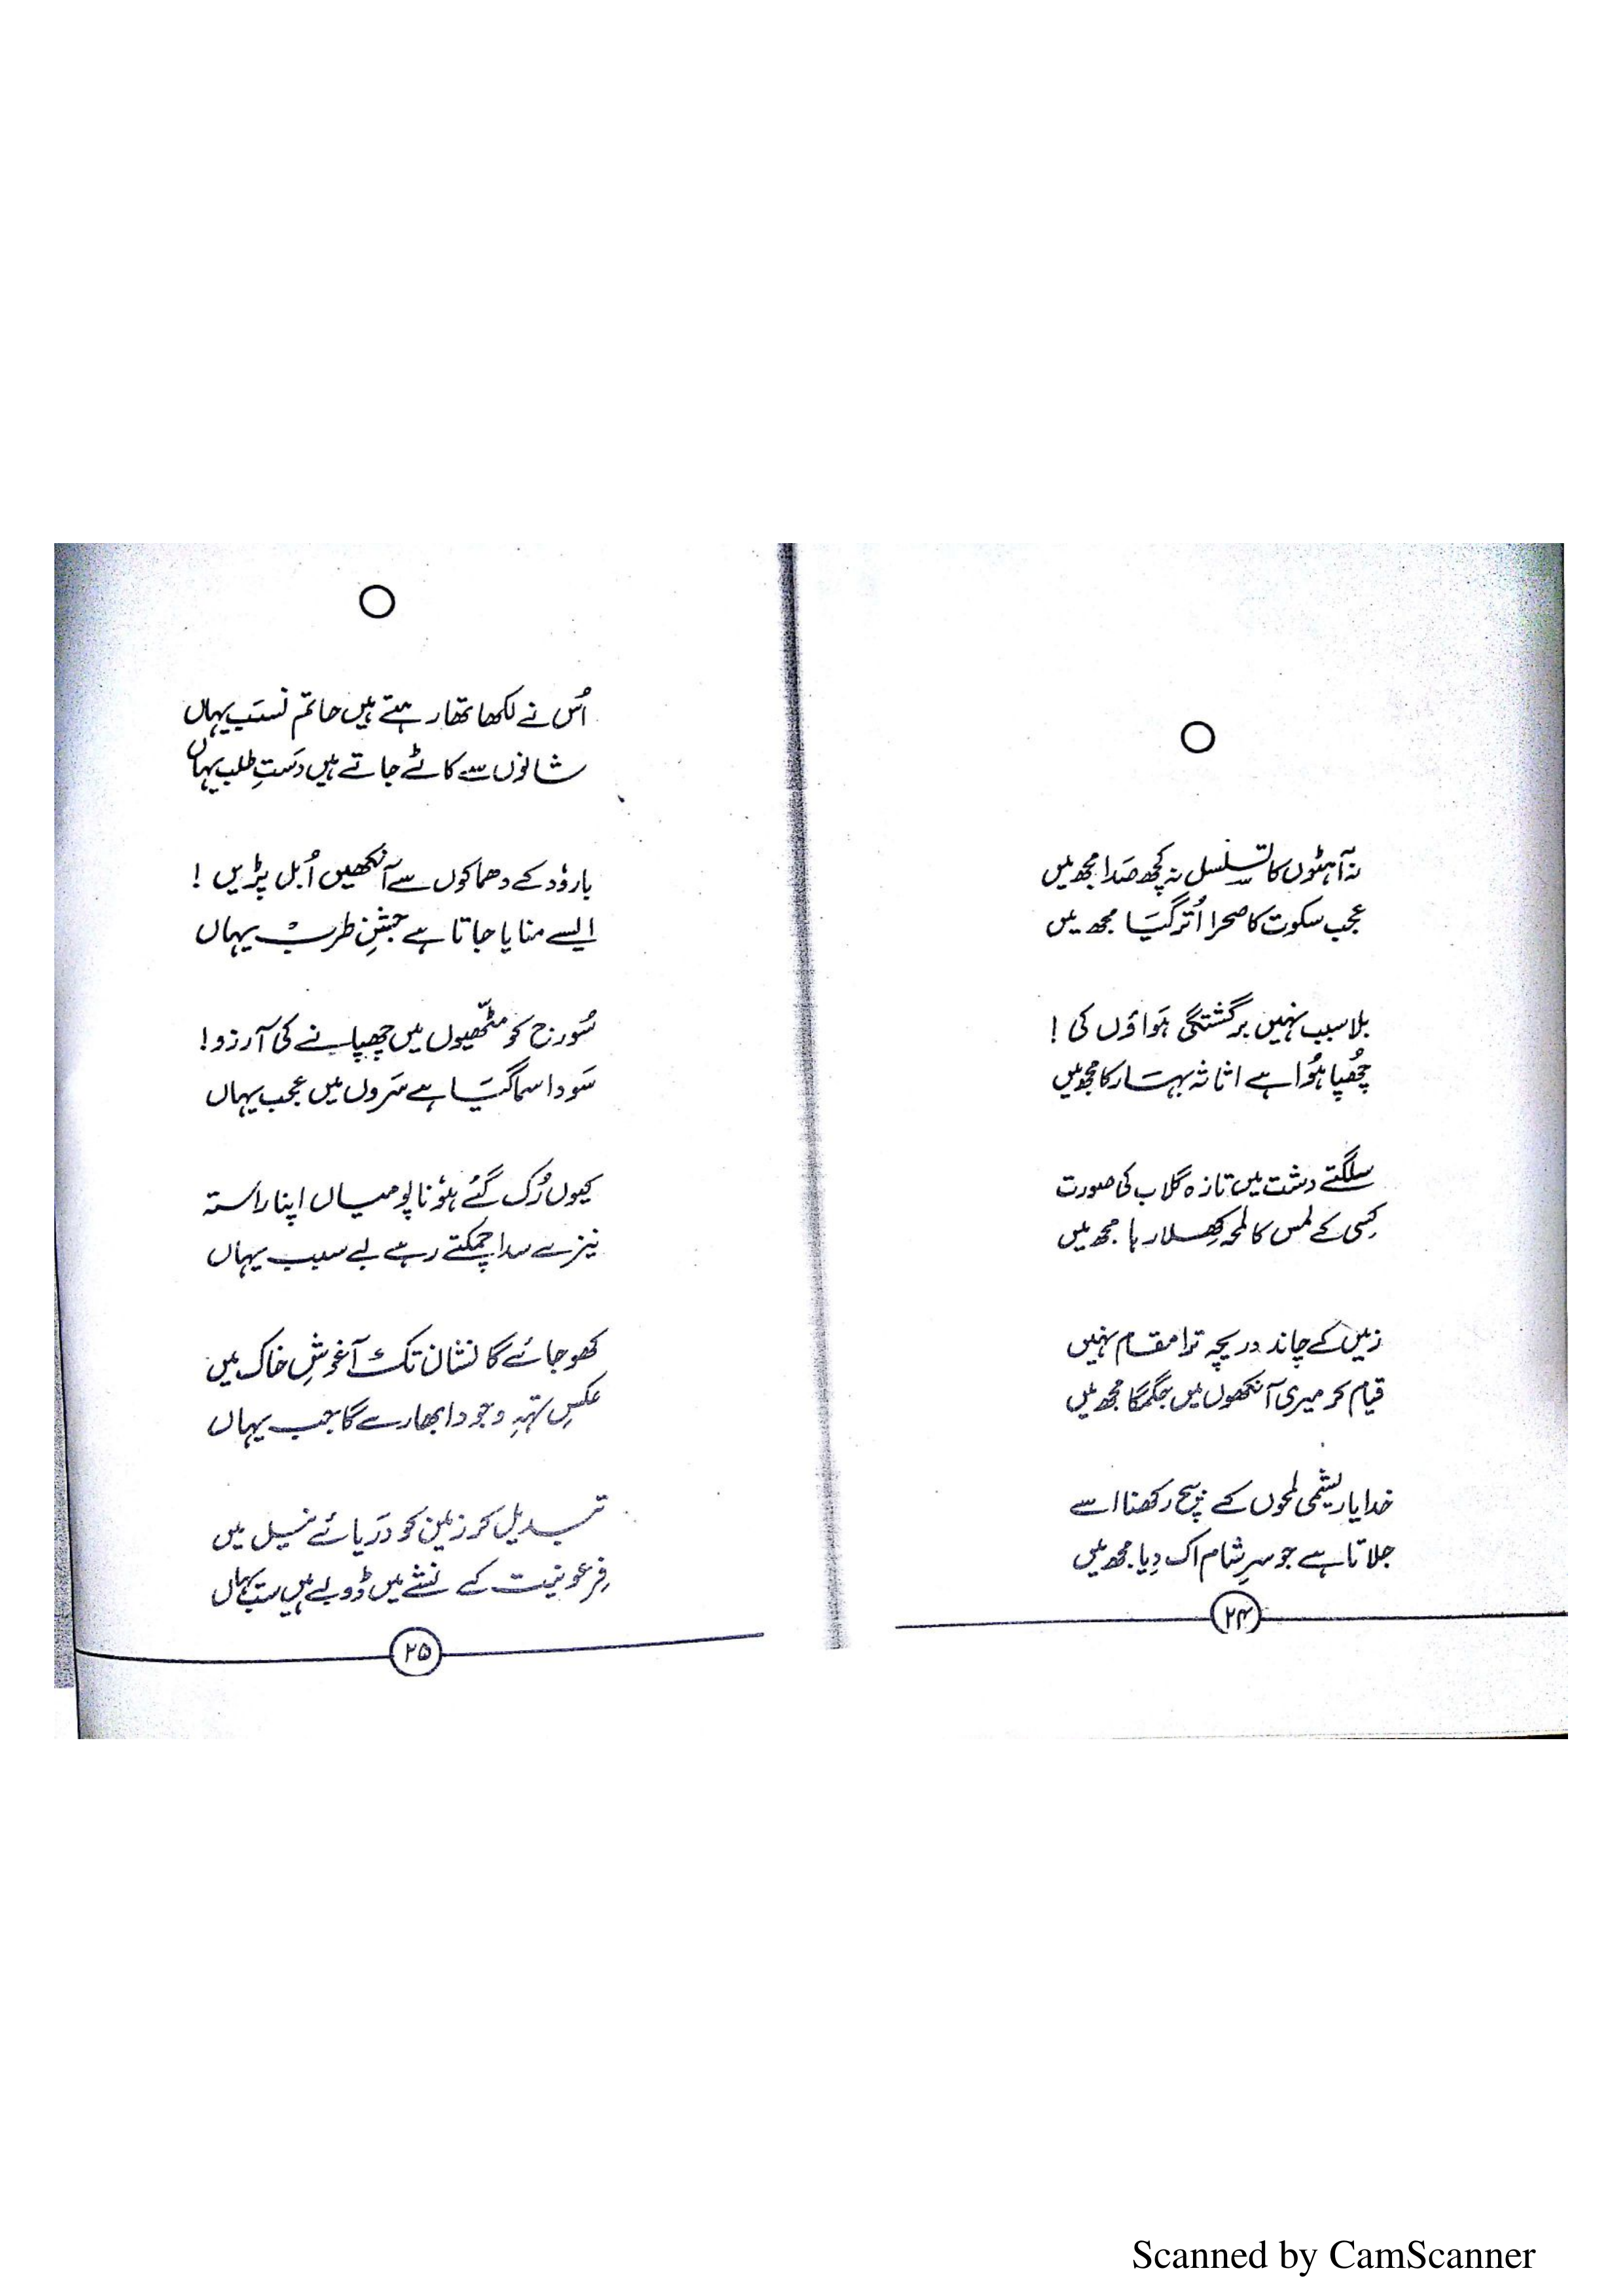 نہ آہٹوں کا تسلسل نہ کچھ صَدا مجھ میں
عجب سکوت کا صحرا اُتر گیَا مجھ میں
بلا سبب نہیں برگشتگی ہَواؤں کی !
چُھپا ہُوا ہے اثاثہ بہَار کا مجھ میں
سلگتے دشت میں تازہ گلاب کی صورت
کِسی کے لمس کا لمحہ کِھلا رہا مجھ میں
زمیں کے چاند دریچہ ترا مقام نہیں
قیام کر میری آنکھوں میں جگمگا مجھ میں
خدایا ریشمی لمحوں کے بیچ رکھنا اسے
جلاتا ہے جو سرِ شام اک دِیا مجھ میں
۲۴
اُس نے لکھا تھا رہتے ہیں حاتم نسَب یہاں
شانوں سے کاٹے جاتے ہیں دَستِ طلب یہاں
بارؤد کے دھماکوں سے آنکھیں اُبل پڑیں !
ایسے منایا جاتا ہے جشنِ طرب یہاں
سُورج کو مٹّھیوں میں چھپانے کی آرزو !
سَودا سما گیَا ہے سَروں میں عجب یہاں
کیوں رُک گئے ہو ناپو میاں اپنا راستہ
نیزے سدا چمکتے رہے بے سبب یہاں
کھو جائے گا نشان تک آغوشِ خاک میں
عکسِ تہہِ وجود ابھارے گا جب یہاں
تبدیل کر زمین کو دَریائے نیل میں
فِرعونیت کے نشے میں ڈوبے ہیں سَب یہاں
۲۵
Scanned by CamScanner